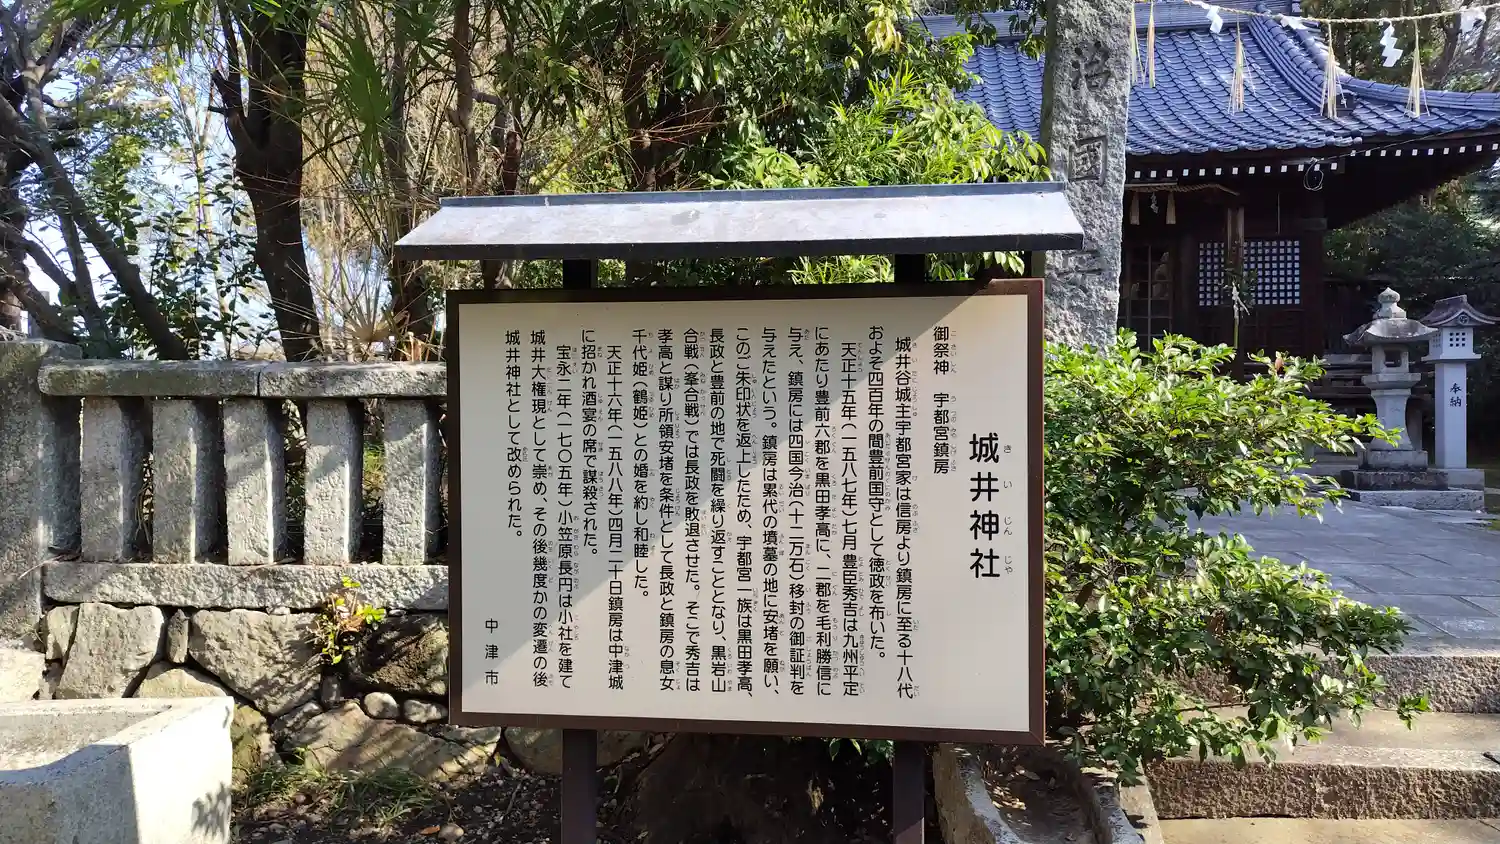 城井神社
御祭神　宇都宮鎮房
城井谷城主宇都宮家は信房より鎮房に至る十八代
およそ四百年の間豊前国守として徳政を布いた。
天正十五年（一五八七年）七月豊臣秀吉は九州平定
にあたり豊前六郡を黒田孝高に、二郡を毛利勝信に
与え、鎮房には四国今治（十二万石）移封の御証判を
与えたという。鎮房は累代の墳墓の地に安堵を願い、
このご朱印状を返上したため、宇都宮一族は黒田孝高、
長政と豊前の地で死闘を繰り返すこととなり、黒岩山
合戦（峯合戦）では長政を敗退させた。そこで秀吉は
孝高と謀り所領安堵を条件として長政と鎮房の息女
千代姫（鶴姫）との婚を約し和睦した。
天正十六年（一五八八年）四月二十日鎮房は中津城
に招かれ酒宴の席で謀殺された。
宝永二年（一七〇五年）小笠原長円は小社を建て
城井大権現として崇め、その後幾度かの変遷の後
城井神社として改められた。
中津市
治国
奉納